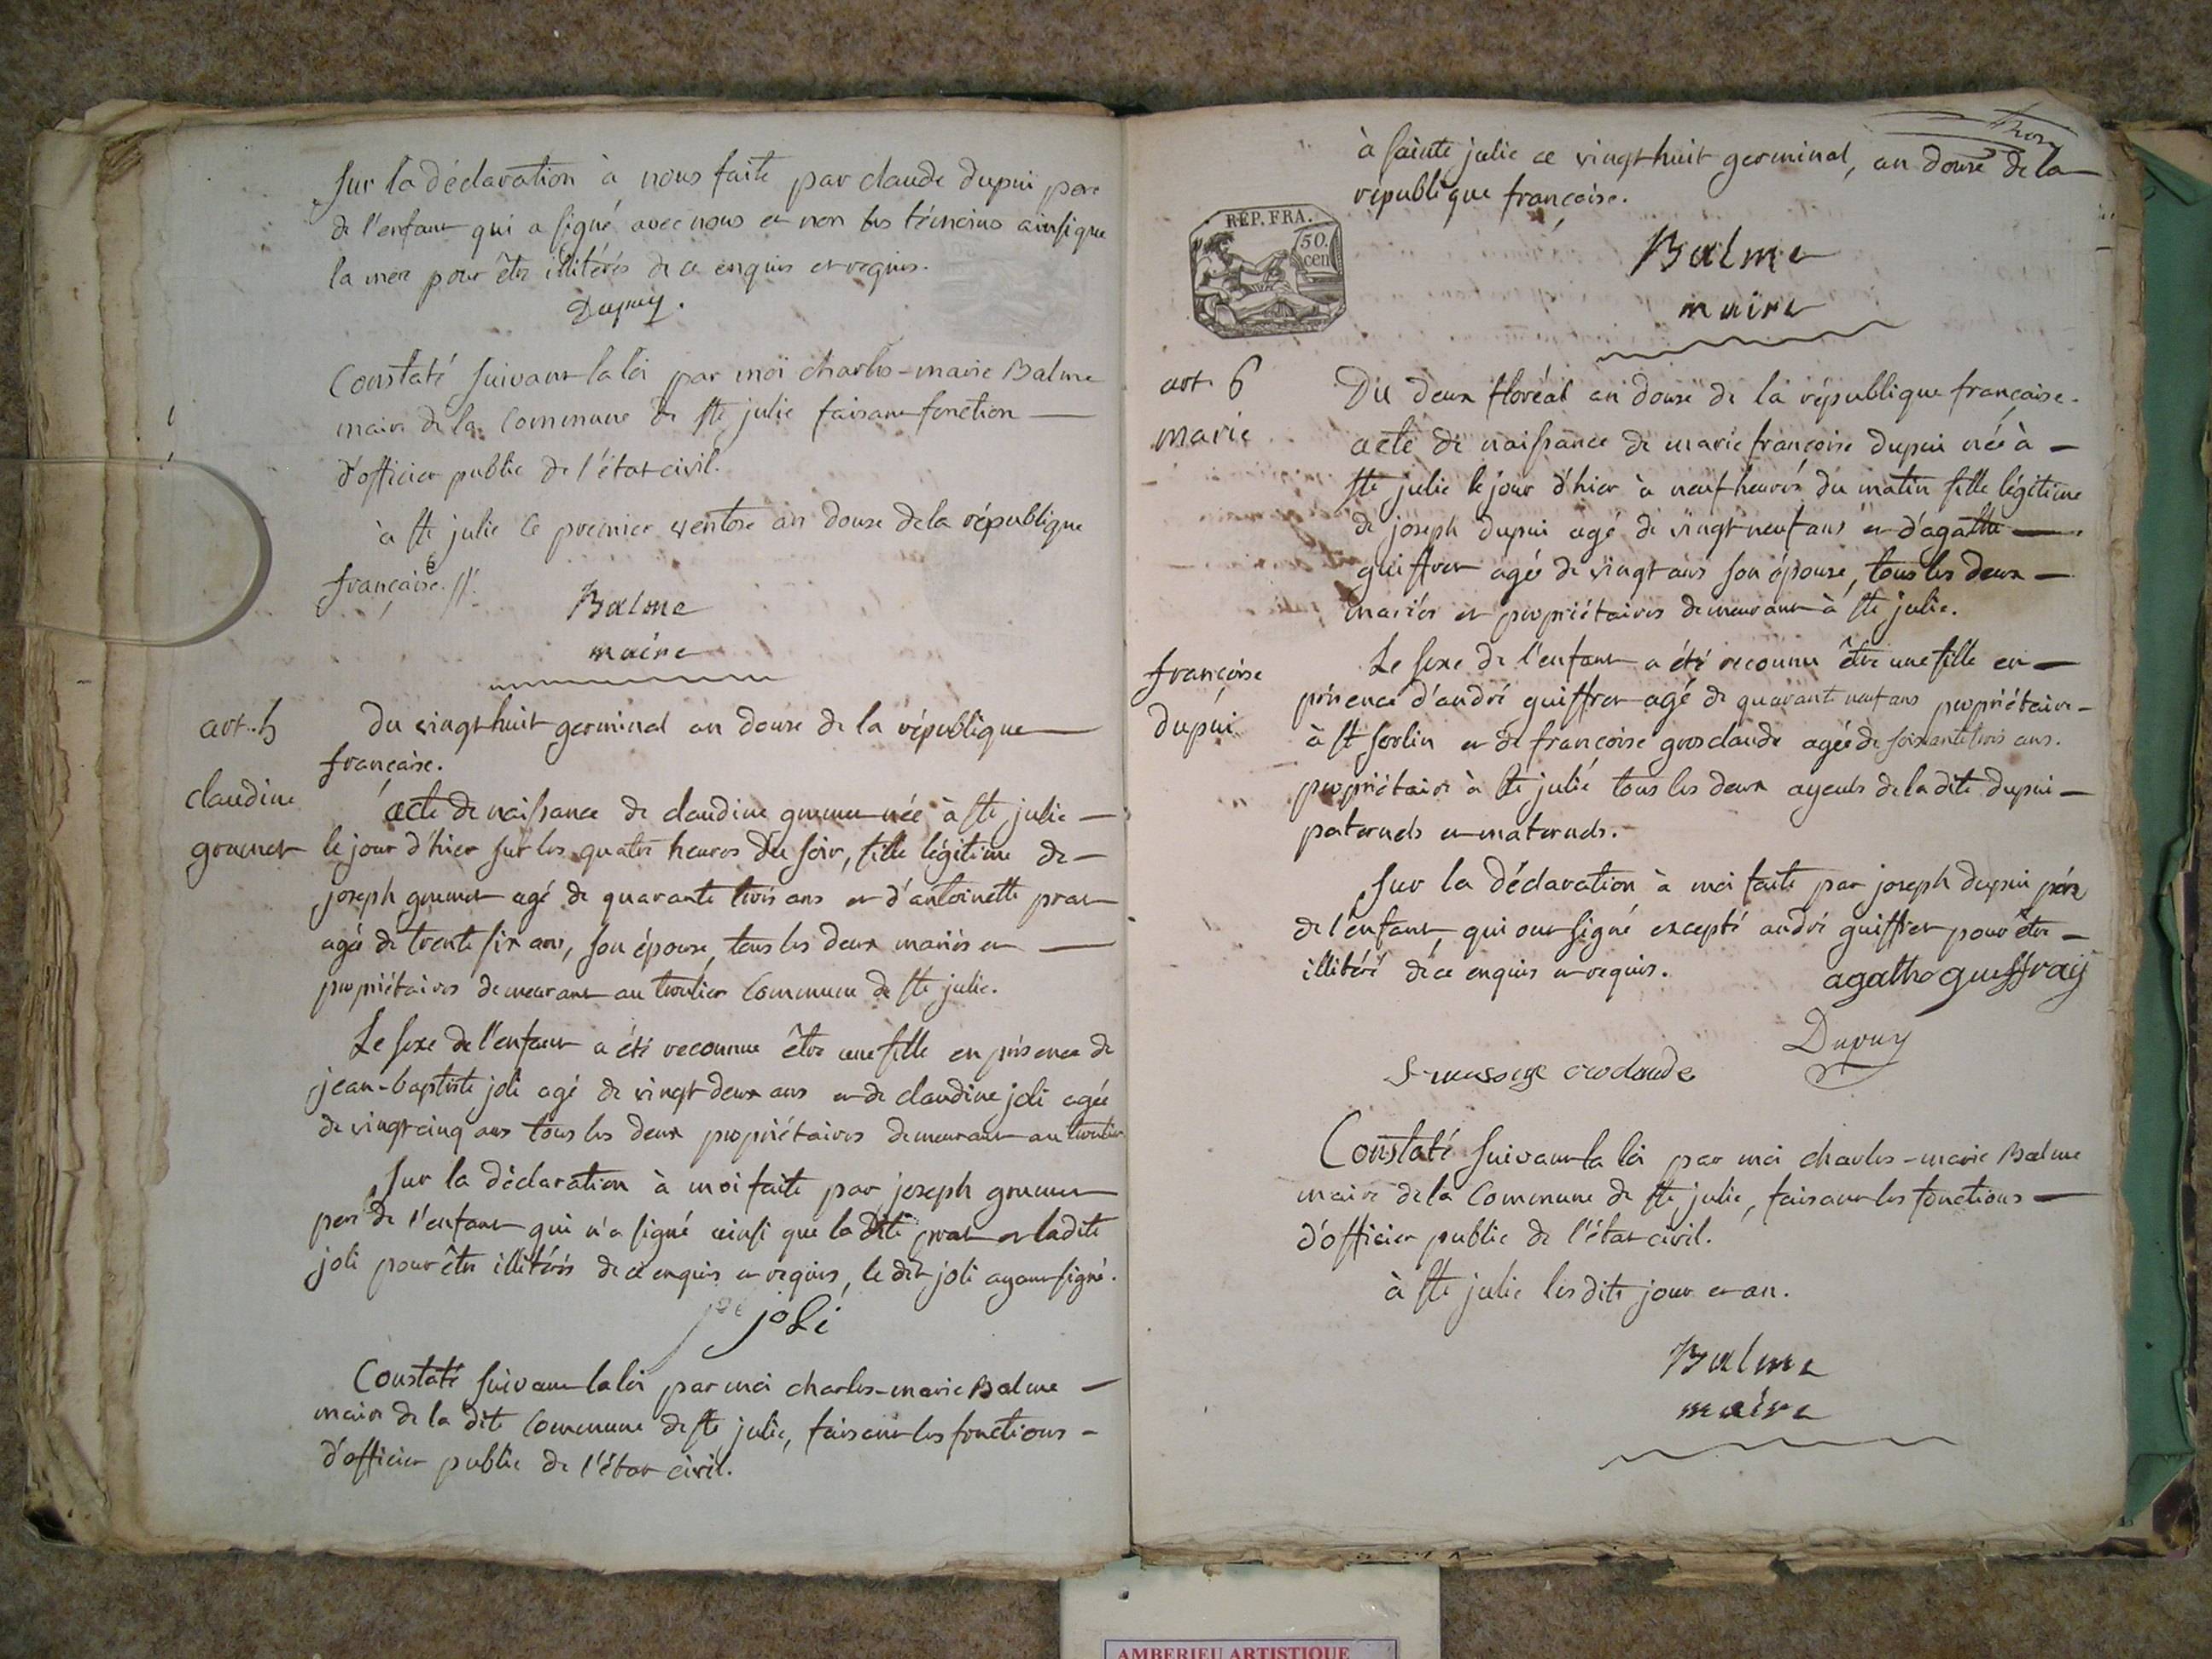 sur la déclaration à nous faite par claude dupui pere
de l'enfant qui a signé avec nous et non les témoins ainsi que
la mere pour être illitérés de ce enquis et requis.
Dupuy.
Constaté suivant la loi par moi charles-marie Balme
maire de la Commune de ste julie faisant fonction
d'officier public de l'état civil.
à ste julie le premier ventose an douze de la république
française.
Balme
maire
art. 5
du vingt huit germinal an douze de la république
française.
claudine
grumet
acte de naissance de claudine grumet née à ste julie
le jour d'hier sur les quatre heures du soir, fille légitime de
joseph grumet agé de quarante trois ans et d'antoinette prat
agée de trente six ans, son épouse, tous les deux mariés et
propriétaires demeurant au trolier Commune de ste julie.
Le sexe de l'enfant a été reconnue être une fille en présence de
jean-baptiste joli agé de vingt deux ans et de claudine joli agée
de vingt cinq ans tous les deux propriétaires demeurant au
sur la déclaration à moi faite par joseph grumet
pere de l'enfant qui n'a signé ainsi que la dite prat et la dite
joli pour être illitérés de ce enquis et requis, le dit joli ayant signé.
joli
Constaté suivant la loi par moi charles-marie Balme
maire de la dite Commune de ste julie, faisant les fonctions
d'officier public de l'état civil.
à sainte julie ce vingt huit germinal, an douze de la
république françoise.
REP. FRA.
50.
cen
Balme
maire
art. 6
marie
françoise
dupui
Du deux floréal an douze de la république française.
acte de naissance de marie françoise dupui née à
ste julie le jour d'hier à neuf heures du matin fille légitime
de joseph dupui agé de vingt neuf ans et d'agathe
guiffrer agée de vingt ans son épouse, tous les deux
mariés et propriétaires demeurant à ste julie.
Le sexe de l'enfant a été reconnu être une fille en
présence d'andré guiffrer agé de quarante neuf ans propriétaire
à st sorlin et de françoise grosclaude agée de soixante trois ans.
propriétaire à ste julie tous les deux ayeuls de la dite dupui
paternels et maternels.
sur la déclaration à moi faite par joseph dupui père
de l'enfant, qui ont signé excepté andré guiffrer pour être
illitéré de ce enquis et requis.
agathe gueffray
Dupuy
Constaté suivant la loi par moi charles-marie Balme
maire de la Commune de ste julie, faisant les fonctions
d'officier public de l'état civil.
à ste julie les dits jour et an.
Balme
maire
AMBERIEU ARTISTIQUE